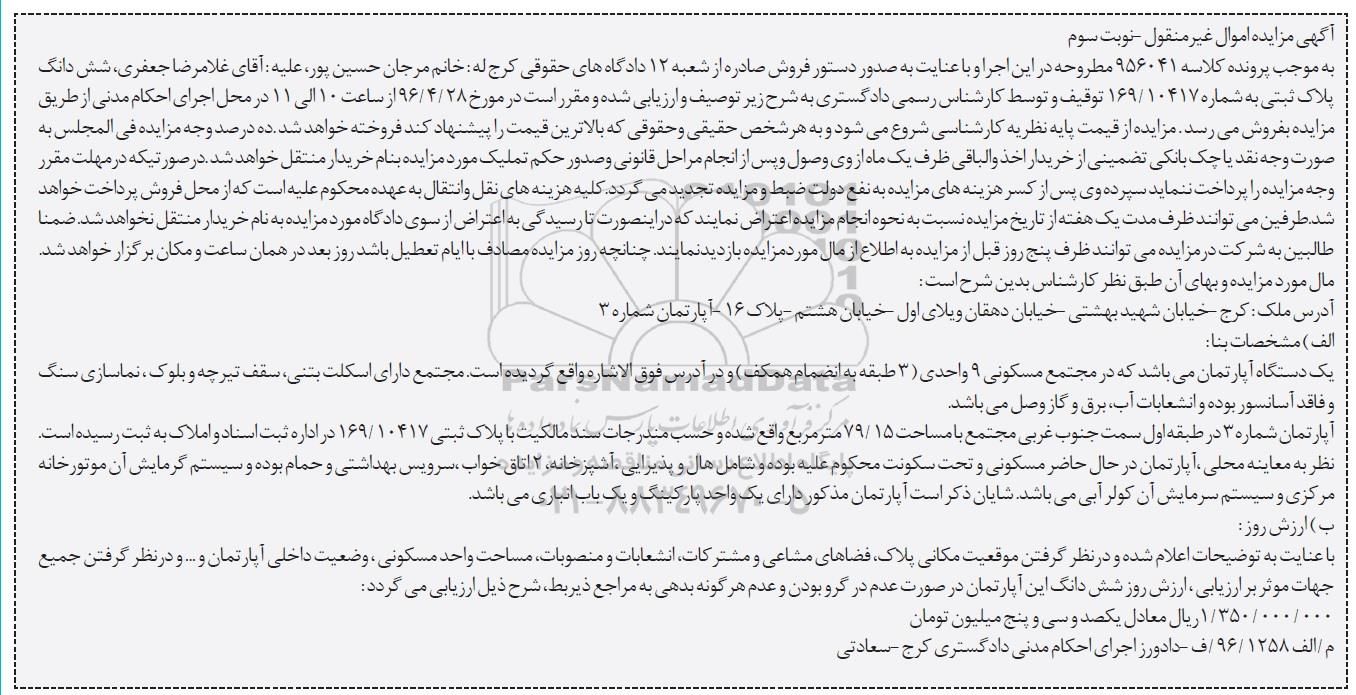 آگهی مزایده اموال غیرمنقول -نوبت سوم
به موجب پرونده کلاسه ۹۵۶۰۴۱ مطروحه در این اجرا و با عنایت به صدور دستور فروش صادره از شعبه ۱۲ دادگاه های حقوقی کرج له: خانم مرجان حسین پور، علیه: آقای غلامرضا جعفری، شش دانگ
پلاک ثبتی به شماره ۱۶۹/۱۰۴۱۷ توقیف و توسط کارشناس رسمی دادگستری به شرح زیر توصیف و ارزیابی شده و مقرر است در مورخ ۹۶/۴/۲۸ از ساعت ۱۰ الی ۱۱ در محل اجرای احکام مدنی از طریق
مزایده بفروش می رسد. مزایده از قیمت پایه نظریه کارشناسی شروع می شود و به هر شخص حقیقی وحقوقی که بالاترین قیمت را پیشنهاد کند فروخته خواهد شد.ده درصد وجه مزایده فی المجلس به
صورت وجه نقد یا چک بانکی تضمینی از خریدار اخذ والباقی ظرف یک ماه از وی وصول وپس از انجام مراحل قانونی وصدور حکم تملیک مورد مزایده بنام خریدار منتقل خواهد شد.درصورتیکه درمهلت مقرر
وجه مزایده را پرداخت ننماید سپرده وی پس از کسر هزینه های مزایده به نفع دولت ضبط و مزایده تجدید می گردد.کلیه هزینه های نقل وانتقال به عهده محکوم علیه است که از محل فروش پرداخت خواهد
شد.طرفین می توانند ظرف مدت یک هفته از تاریخ مزایده نسبت به نحوه انجام مزایده اعتراض نمایند که دراینصورت تا رسیدگی به اعتراض از سوی دادگاه مورد مزایده به نام خریدار منتقل نخواهد شد.ضمنا
طالبین به شرکت درمزایده می توانند ظرف پنج روز قبل از مزایده به اطلاع از مال موردمزایده بازدیدنمایند. چنانچه روز مزایده مصادف باایام تعطیل باشد روز بعد در همان ساعت و مکان برگزار خواهد شد.
مال مورد مزایده و بهای آن طبق نظر کارشناس بدین شرح است:
آدرس ملک: کرج -خیابان شهید بهشتی -خیابان دهقان ویلای اول -خیابان هشتم -پلاک ۱۶ -آپارتمان شماره ۳
الف) مشخصات بنا:
یک دستگاه آپارتمان می باشد که در مجتمع مسکونی ۹ واحدی (۳ طبقه به انضمام همکف) و در آدرس فوق الاشاره واقع گردیده است. مجتمع دارای اسکلت بتنی، سقف تیرچه و بلوک، نماسازی سنگ
و فاقد آسانسور بوده و انشعابات آب، برق و گاز وصل می باشد.
آپارتمان شماره ۳ در طبقه اول سمت جنوب غربی مجتمع با مساحت ۷۹/۱۵ مترمربع واقع شده و حسب مندرجات سند مالکیت با پلاک ثبتی ۱۶۹/۱۰۴۱۷ در اداره ثبت اسناد و املاک به ثبت رسیده است.
نظر به معاینه محلی، آپارتمان در حال حاضر مسکونی و تحت سکونت محکوم علیه بوده و شامل هال و پذیرایی، آشپزخانه، ۲ اتاق خواب، سرویس بهداشتی و حمام بوده و سیستم گرمایش آن موتورخانه
مرکزی و سیستم سرمایش آن کولر آبی می باشد. شایان ذکر است آپارتمان مذکور دارای یک واحد پارکینگ و یک باب انباری می باشد.
ب) ارزش روز:
با عنایت به توضیحات اعلام شده و درنظر گرفتن موقعیت مکانی پلاک، فضاهای مشاعی و مشترکات، انشعابات و منصوبات، مساحت واحد مسکونی، وضعیت داخلی آپارتمان و ... و درنظر گرفتن جمیع
جهات موثر بر ارزیابی، ارزش روز شش دانگ این آپارتمان در صورت عدم در گرو بودن و عدم هرگونه بدهی به مراجع ذیربط، شرح ذیل ارزیابی می گردد:
۱/۳۵۰/۰۰۰/۰۰۰ ریال معادل یکصد و سی و پنج میلیون تومان
م/الف ۹۶/۱۲۵۸/ف -دادورز اجرای احکام مدنی دادگستری کرج -سعادتی
ParsNamadData
مرکز فرآوری اطلاعات پارس نماد داده ها
پایگاه اطلاع رسانی مناقصه و مزایده
۰۲۱-۸۸۳۴۹۶۷۰-۵